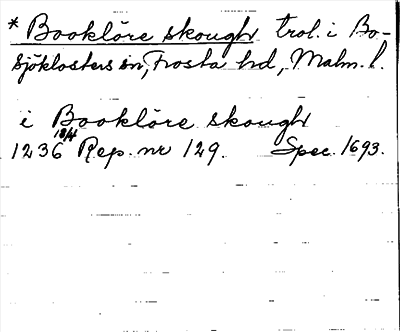 * Bookløre skough trol. i Bo-
sjöklosters sn, Frosta hd, Malm. l.
i Bookløre skough
1236 18/4 Rep. nr 129. Spec. 1693.